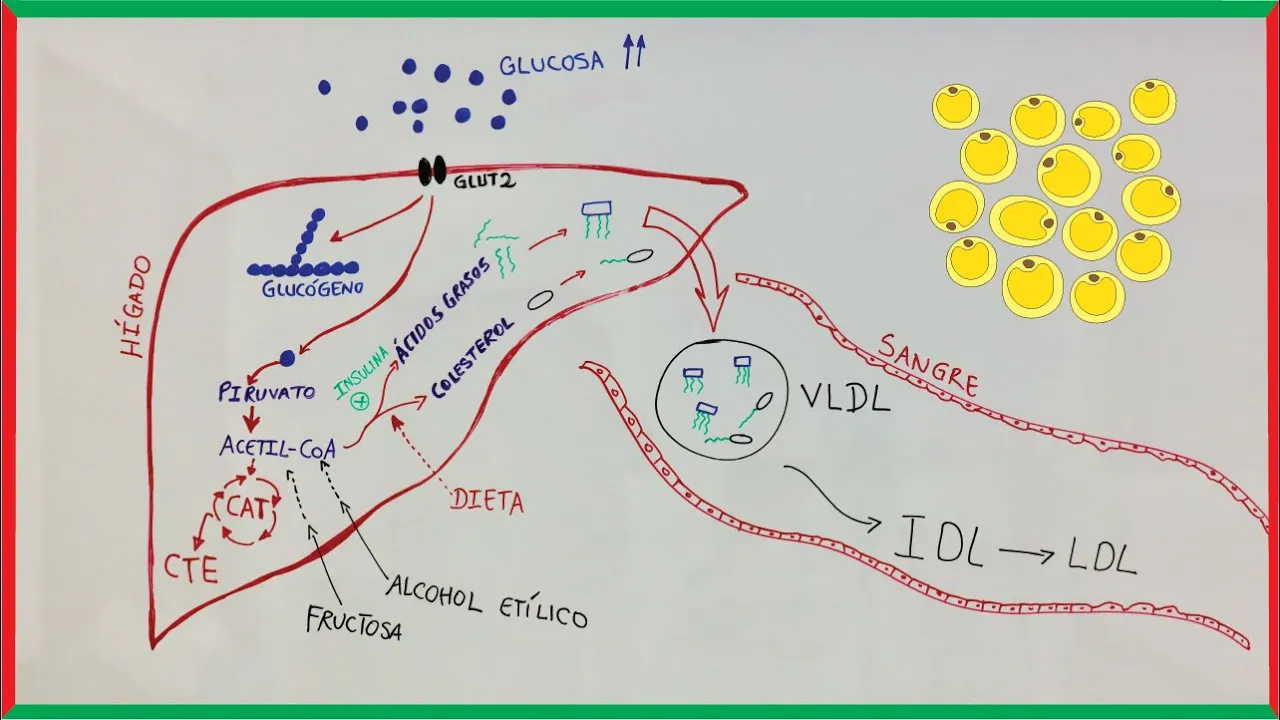 GLUCOSA
GLUT2
GLUCÓGENO
HÍGADO
ÁCIDOS GRASOS
INSULINA
COLESTEROL
PIRUVATO
ACETIL-CoA
CAT
CTE
DIETA
ALCOHOL ETÍLICO
FRUCTOSA
SANGRE
VLDL
IDL
LDL